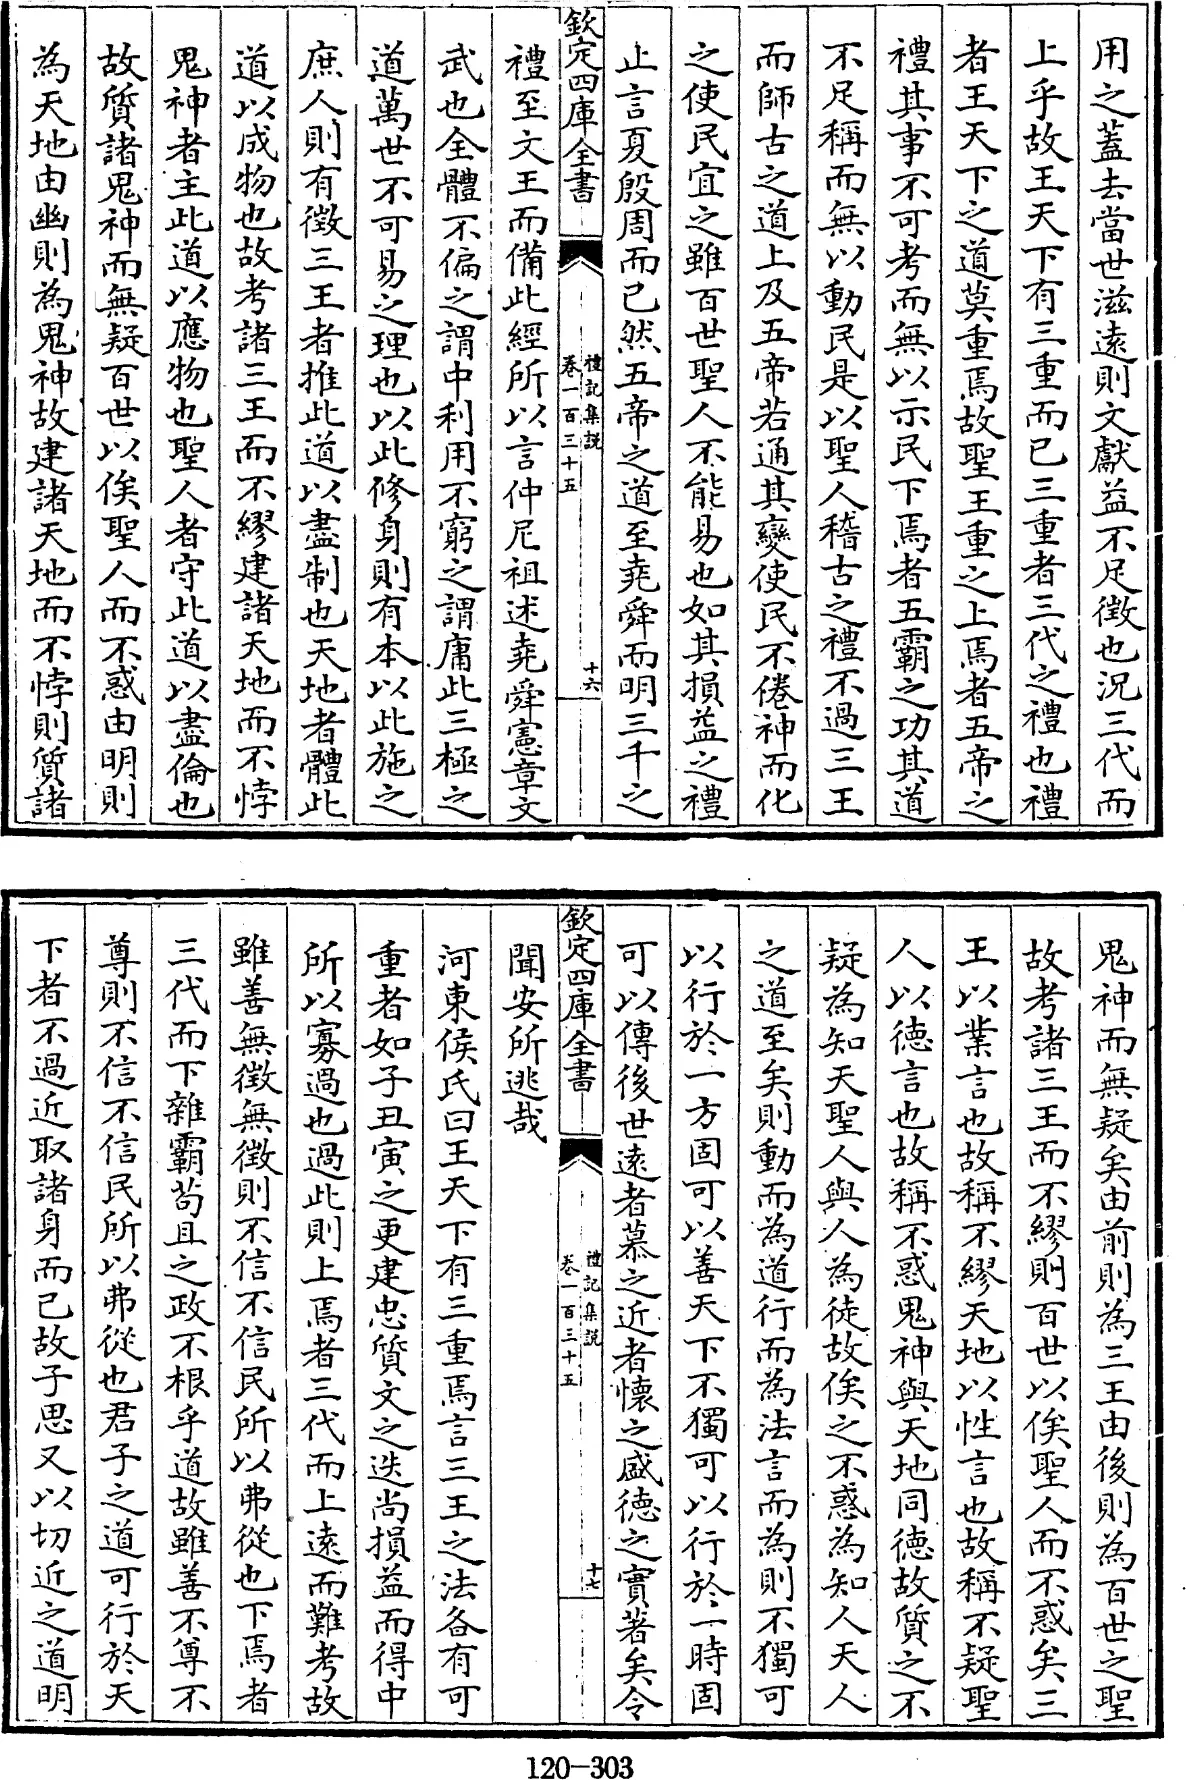 用之蓋去當世滋遠則文獻益不足徴也況三代而
上乎故王天下有三重而已三重者三代之禮也禮
者王天下之道莫重焉故聖王重之上焉者五帝之
禮其事不可考而無以示民下焉者五霸之功其道
不足稱而無以動民是以聖人稽古之禮不過三王
而師古之道上及五帝若通其變使民不倦神而化
之使民宜之雖百世聖人不能易也如其損益之禮
止言夏殷周而已然五帝之道至堯舜而明三千之
欽定四庫全書
禮記集說
卷一百三十五
十六
禮至文王而備此經所以言仲尼祖述堯舜憲章文
武也全體不偏之謂中利用不窮之謂庸此三極之
道萬世不可易之理也以此修身則有本以此施之
庶人則有徴三王者推此道以盡制也天地者體此
道以成物也故考諸三王而不繆建諸天地而不悖
鬼神者主此道以應物也聖人者守此道以盡倫也
故質諸鬼神而無疑百世以俟聖人而不惑由明則
為天地由幽則為鬼神故建諸天地而不悖則質諸
鬼神而無疑矣由前則為三王由後則為百世之聖
故考諸三王而不繆則百世以俟聖人而不惑矣三
王以業言也故稱不繆天地以性言也故稱不疑聖
人以德言也故稱不惑鬼神與天地同德故質之不
疑為知天聖人與人為徒故俟之不惑為知人天人
之道至矣則動而為道行而為法言而為則不獨可
以行於一方固可以善天下不獨可以行於一時固
可以傳後世遠者慕之近者懷之盛德之實著矣令
欽定四庫全書
禮記集說
卷一百三十五
十七
聞安所逃哉
河東侯氏曰王天下有三重焉言三王之法各有可
重者如子丑寅之更建忠質文之迭尚損益而得中
所以寡過也過此則上焉者三代而上遠而難考故
雖善無徴無徴則不信不信民所以弗從也下焉者
三代而下雜霸苟且之政不根乎道故雖善不尊不
尊則不信不信民所以弗從也君子之道可行於天
下者不過近取諸身而已故子思又以切近之道明
120-303